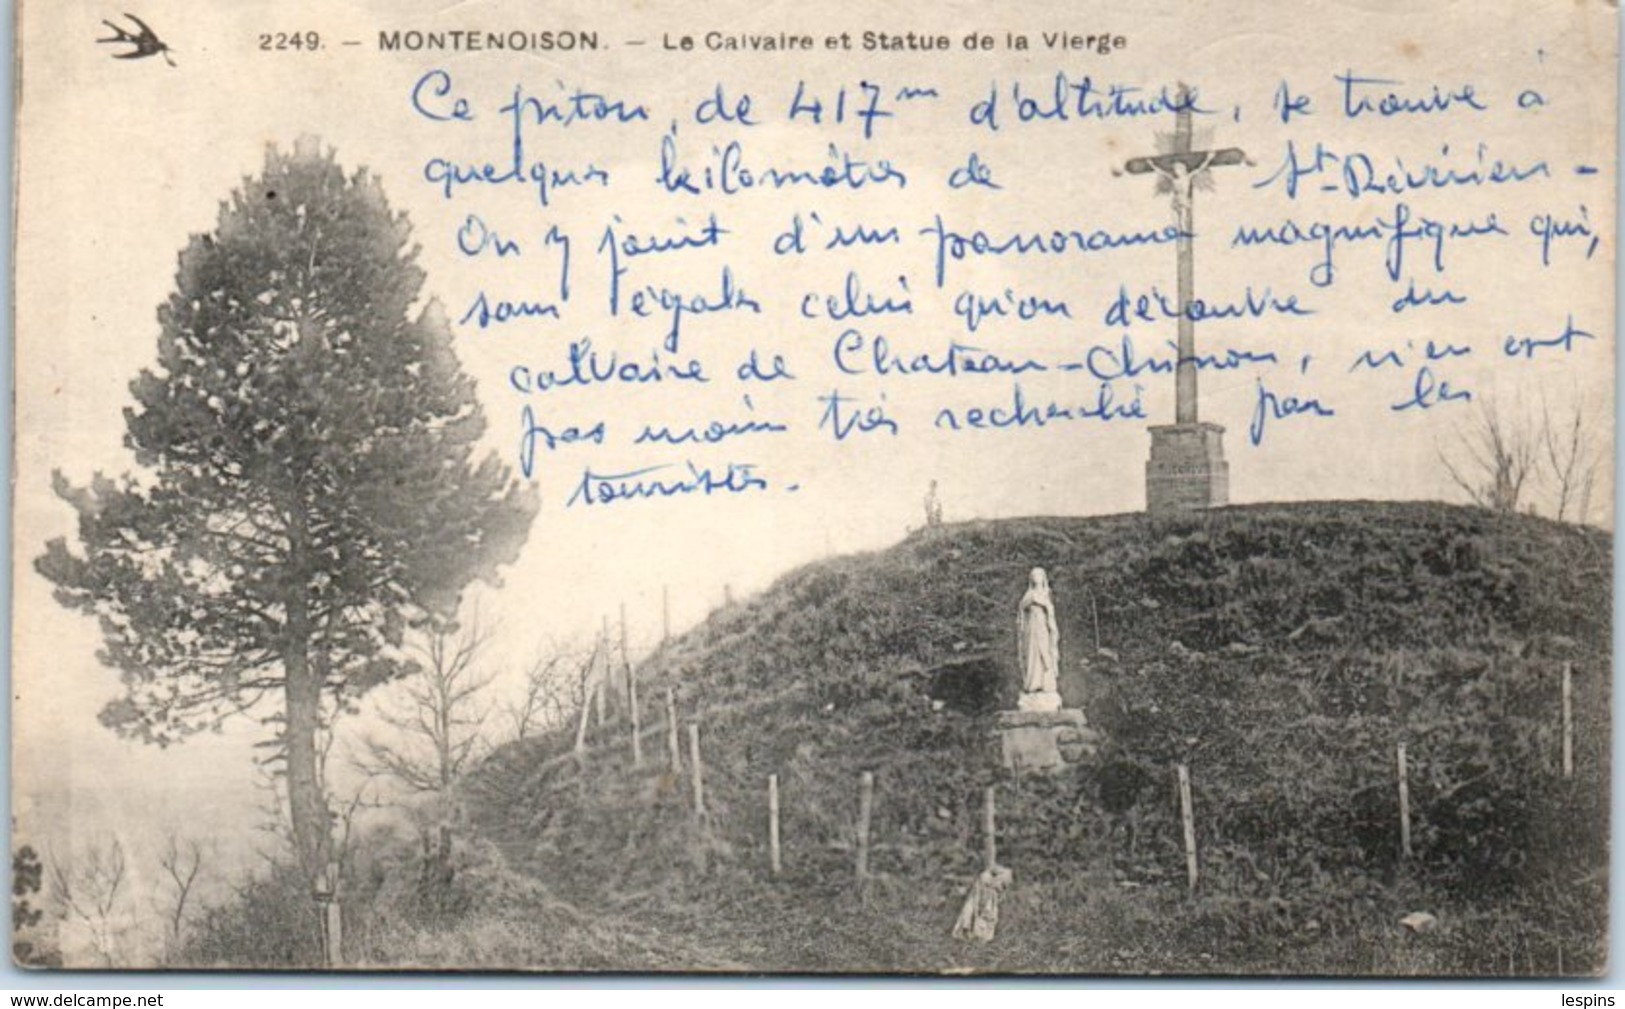 2249. — MONTENOISON. — Le Calvaire et Statue de la Vierge
Ce piton, de 417m d'altitude, se trouve à
quelques kilomètres de St-Révérien -
On y jouit d'un panorama magnifique qui,
sans égaler celui qu'on découvre du
calvaire de Chateau-Chinon, n'en est
pas moins très recherché par les
touristes.
www.delcampe.net
lespins